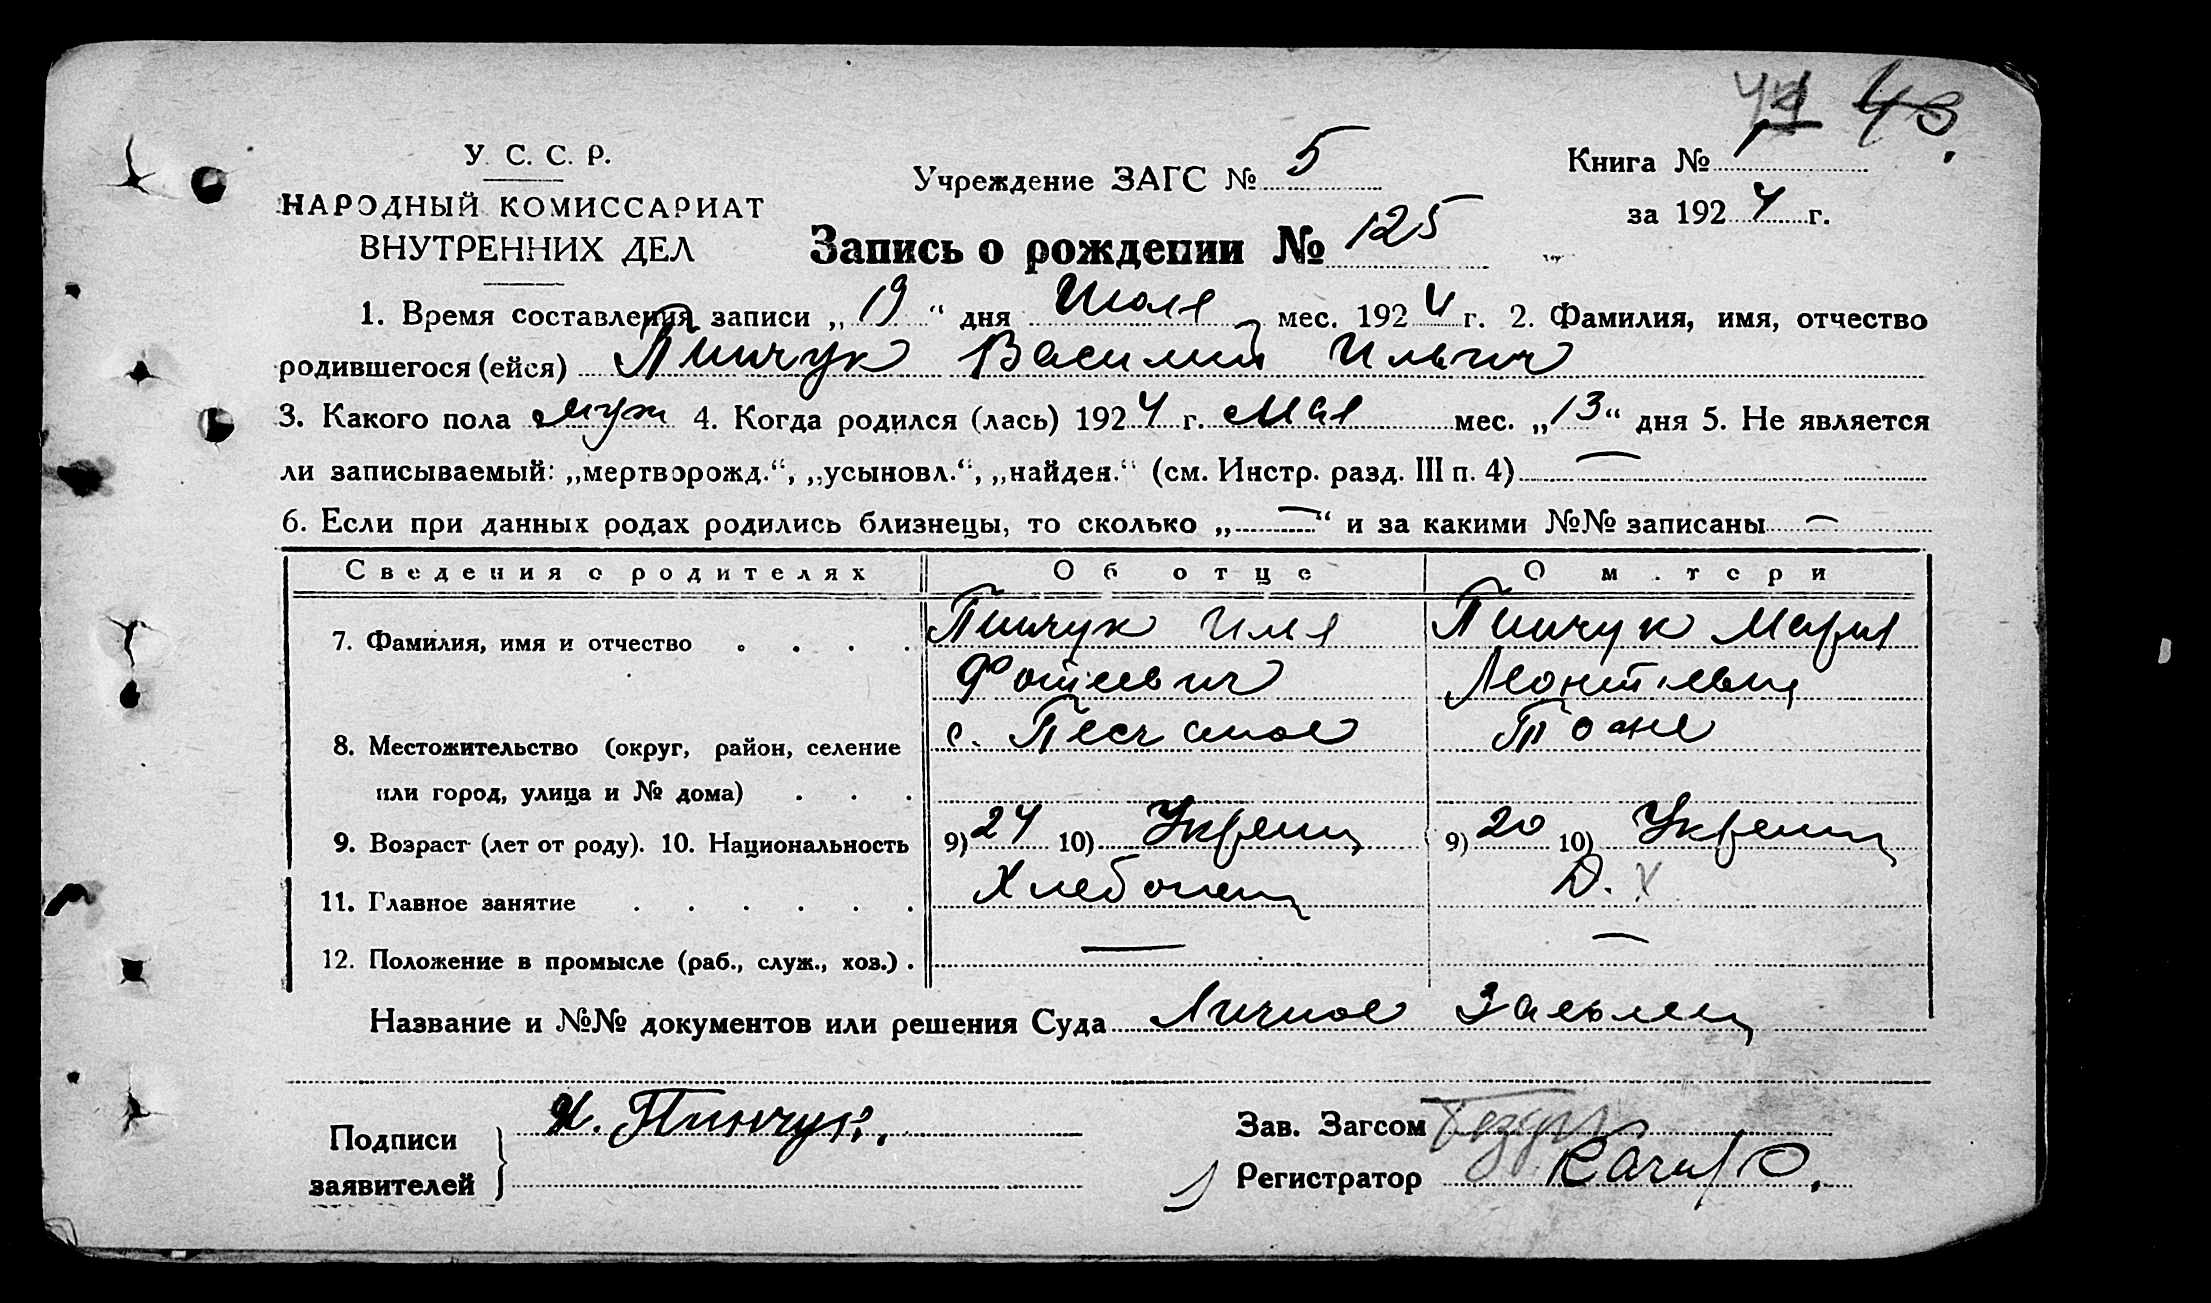 48.
У. С. С. Р.
НАРОДНЫЙ КОМИССАРИАТ
ВНУТРЕННИХ ДЕЛ
Учреждение ЗАГС № 5
Книга № 1
за 1924 г.
Запись о рождении № 125
1. Время составления записи „19“ дня Июля мес. 1924 г. 2. Фамилия, имя, отчество
родившегося (ейся) Пинчук Василий Ильич
3. Какого пола муж 4. Когда родился (лась) 1924 г. Мая мес. „13“ дня 5. Не является
ли записываемый: „мертворожд.“, „усыновл.“, „найден.“ (см. Инстр. разд. III п. 4) —
6. Если при данных родах родились близнецы, то сколько „—“ и за какими №№ записаны —
Сведения о родителях Об отце О м.тери
7. Фамилия, имя и отчество . . . . Пинчук Илья Пинчук Мария
Фотиевич Леонтьевна
8. Местожительство (округ, район, селение с. Песчаное Тоже
или город, улица и № дома) . . .
9. Возраст (лет от роду). 10. Национальность 9) 24 10) Украинц 9) 20 10) Украинц
11. Главное занятие . . . . . . Хлебопашц Д. Х
12. Положение в промысле (раб., служ., хоз.) . — —
Название и №№ документов или решения Суда Личное Заявлен
Подписи
заявителей
И. Пинчук.
Зав. Загсом
Регистратор